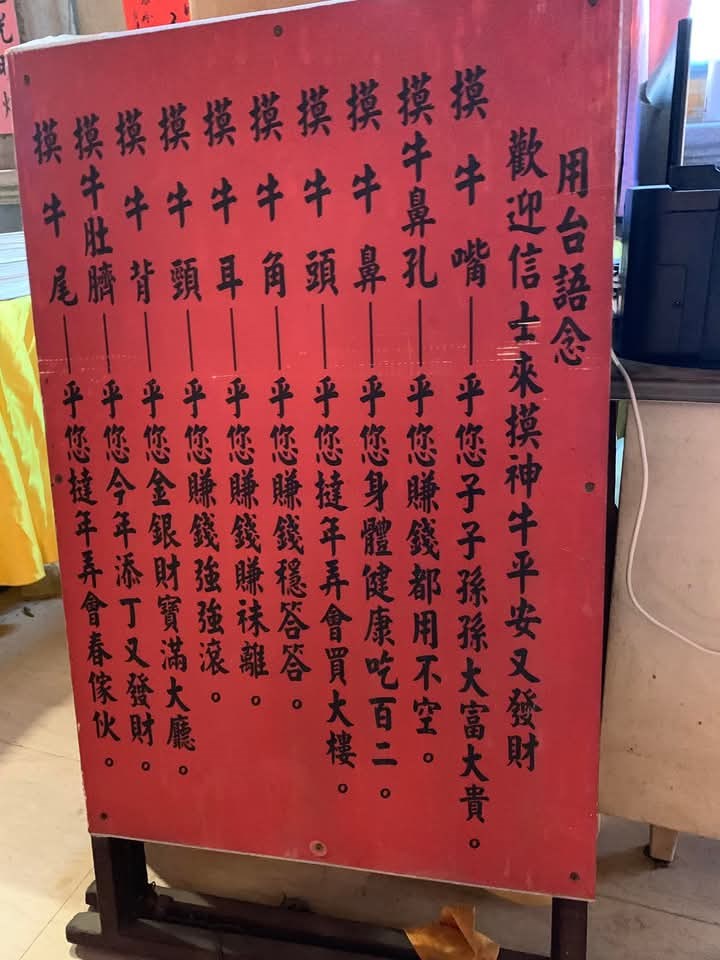 用台語念
歡迎信士來摸神牛平安又發財
摸牛嘴——乎您子子孫孫大富大貴。
摸牛鼻孔——乎您賺錢都用不空。
摸牛鼻——乎您身體健康吃百二。
摸牛頭——乎您撻年弄會買大樓。
摸牛角——乎您賺錢穩答答。
摸牛耳——乎您賺錢賺袜離。
摸牛頸——乎您賺錢強強滾。
摸牛背——乎您金銀財寶滿大廳。
摸牛肚臍——乎您今年添丁又發財。
摸牛尾——乎您撻年弄會春傢伙。